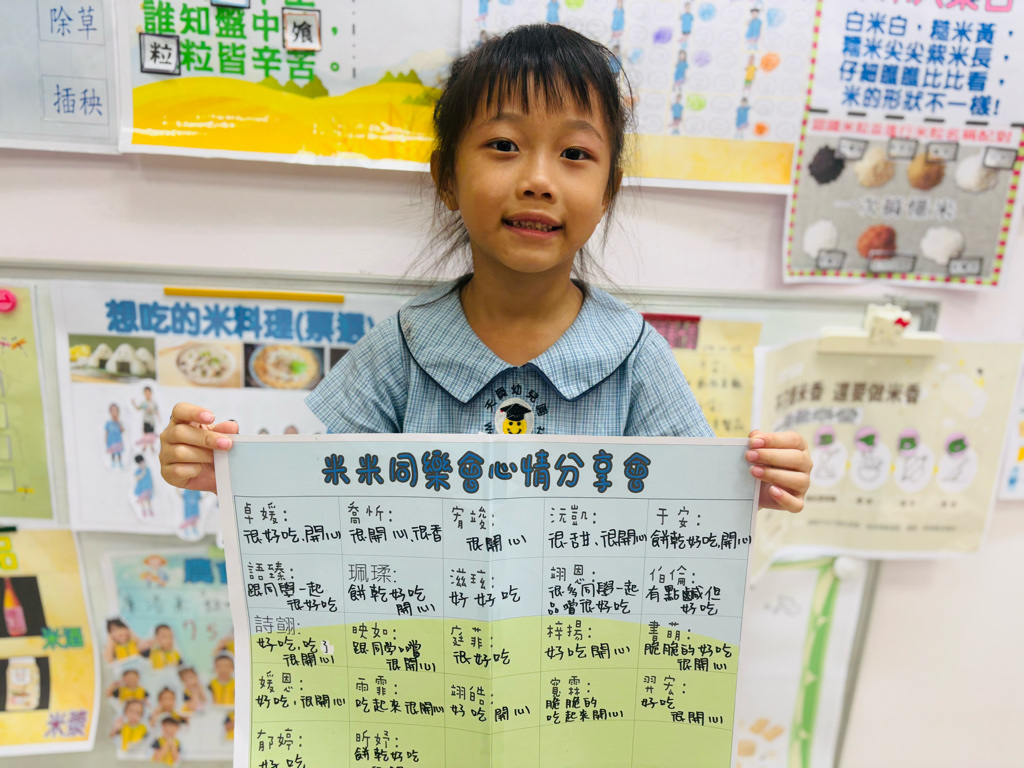 除草
插秧
誰知盤中
飧
粒
粒皆辛苦。
白米白，糙米黃，
糙米尖尖紫米長，
仔細瞧瞧比比看，
米的形狀不一樣！
想吃的米料理(票選)
還要做米香
米漿
米米同樂會心情分享會
卓媛：
很好吃、開心
喬忻：
很開心、很香
宥竣：
很開心
沅凱：
很甜、很開心
于安：
餅乾好吃、開心
語臻：
跟同學一起
很好吃
珮瑈：
餅乾好吃
開心
滋玹：
好好吃
翊恩：
很多同學一起
品嚐很好吃
伯倫：
有點鹹但
好吃
詩翩：
好吃、吃了
很開心
映如：
跟同學嚐
很開心
庭菲：
很好吃
梓揚：
好吃開心
書萌：
脆脆的好吃
很開心
媛恩：
好吃，很開心
雨霏：
吃起來很開心
翊皓：
好吃開心
寬霖：
脆脆的
吃起來開心
羿宏：
好吃
很開心
郁婷：
好吃
昕妤：
餅乾好吃